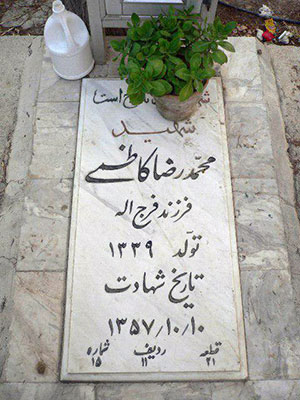 شهید
محمدرضا کاظمی
فرزند فرج اله
تولد ۱۳۳۹
تاریخ شهادت
۱۳۵۷/۱۰/۱۰
قطعه ۲۱ ردیف ۱۱ شماره ۱۵